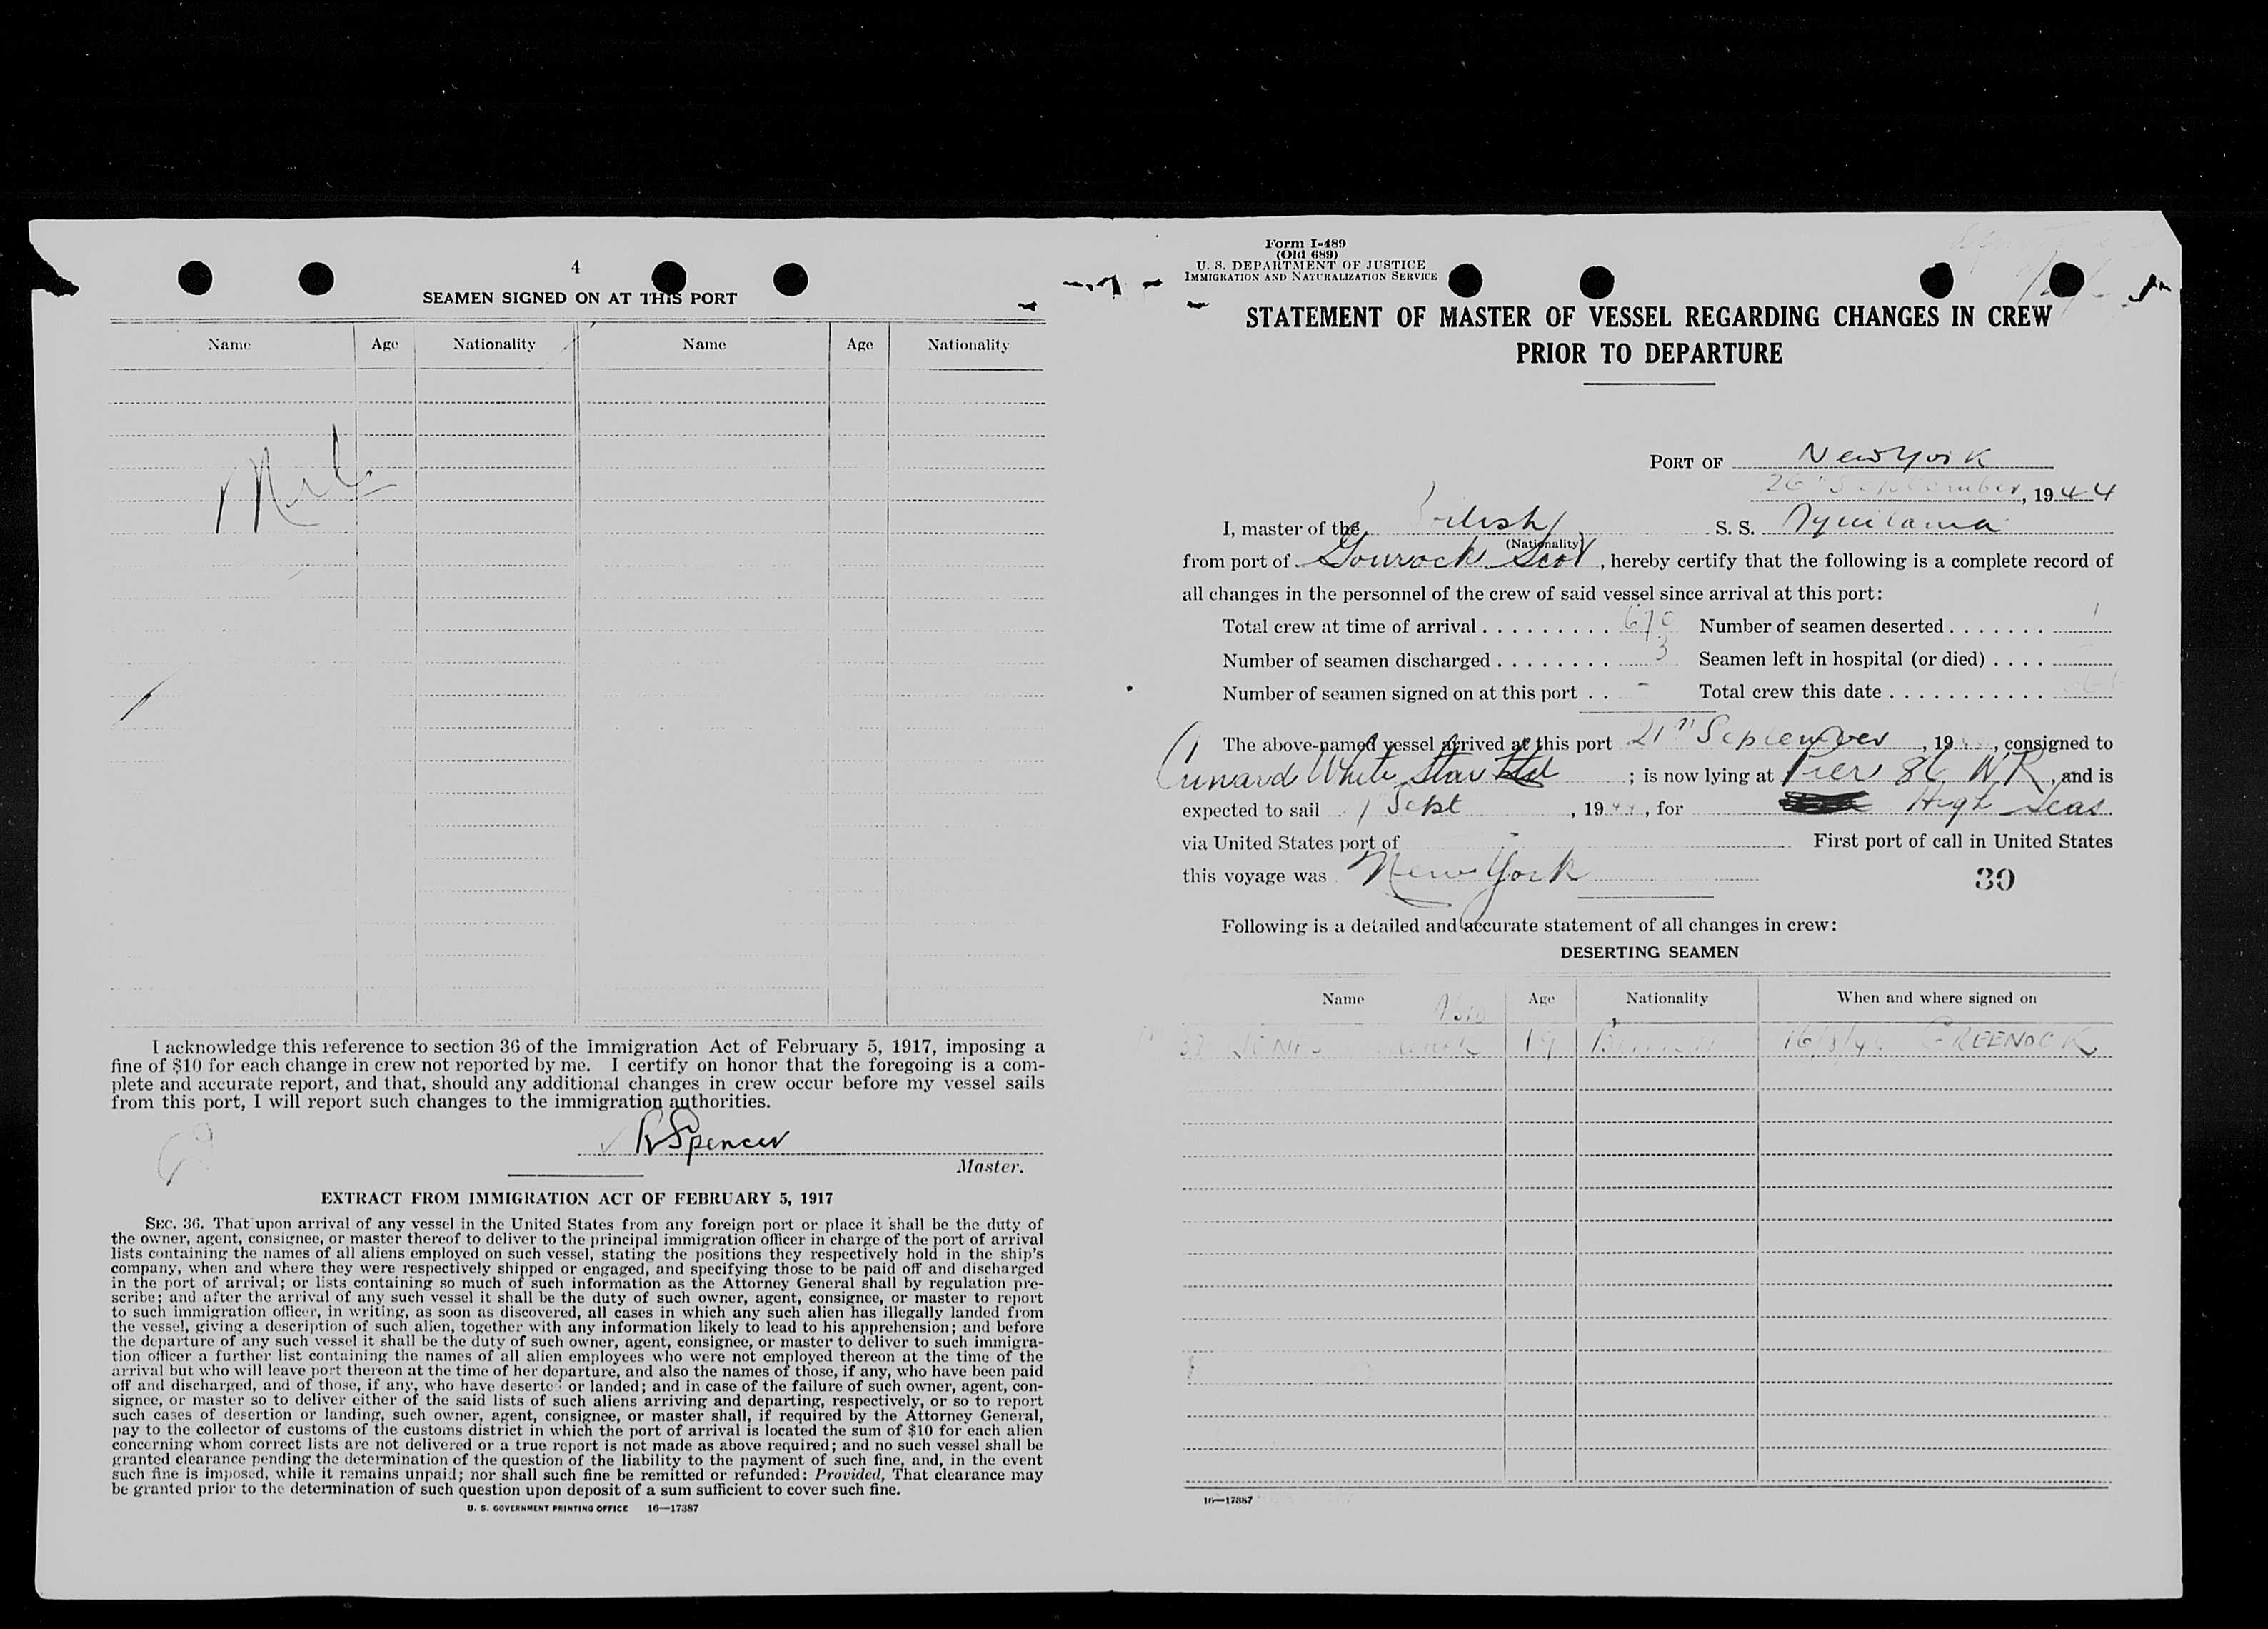 4
SEAMEN SIGNED ON AT THIS PORT
Name Age Nationality Name Age Nationality
Nil
I acknowledge this reference to section 36 of the Immigration Act of February 5, 1917, imposing a
fine of $10 for each change in crew not reported by me. I certify on honor that the foregoing is a com-
plete and accurate report, and that, should any additional changes in crew occur before my vessel sails
from this port, I will report such changes to the immigration authorities.
R Spencer
Master.
EXTRACT FROM IMMIGRATION ACT OF FEBRUARY 5, 1917
SEC. 36. That upon arrival of any vessel in the United States from any foreign port or place it shall be the duty of
the owner, agent, consignee, or master thereof to deliver to the principal immigration officer in charge of the port of arrival
lists containing the names of all aliens employed on such vessel, stating the positions they respectively hold in the ship's
company, when and where they were respectively shipped or engaged, and specifying those to be paid off and discharged
in the port of arrival; or lists containing so much of such information as the Attorney General shall by regulation pre-
scribe; and after the arrival of any such vessel it shall be the duty of such owner, agent, consignee, or master to report
to such immigration officer, in writing, as soon as discovered, all cases in which any such alien has illegally landed from
the vessel, giving a description of such alien, together with any information likely to lead to his apprehension; and before
the departure of any such vessel it shall be the duty of such owner, agent, consignee, or master to deliver to such immigra-
tion officer a further list containing the names of all alien employees who were not employed thereon at the time of the
arrival but who will leave port thereon at the time of her departure, and also the names of those, if any, who have been paid
off and discharged, and of those, if any, who have deserted or landed; and in case of the failure of such owner, agent, con-
signee, or master so to deliver either of the said lists of such aliens arriving and departing, respectively, or so to report
such cases of desertion or landing, such owner, agent, consignee, or master shall, if required by the Attorney General,
pay to the collector of customs of the customs district in which the port of arrival is located the sum of $10 for each alien
concerning whom correct lists are not delivered or a true report is not made as above required; and no such vessel shall be
granted clearance pending the determination of the question of the liability to the payment of such fine, and, in the event
such fine is imposed, while it remains unpaid; nor shall such fine be remitted or refunded: Provided, That clearance may
be granted prior to the determination of such question upon deposit of a sum sufficient to cover such fine.
U. S. GOVERNMENT PRINTING OFFICE 16—17387
Form I-489
(Old 689)
U. S. DEPARTMENT OF JUSTICE
IMMIGRATION AND NATURALIZATION SERVICE
STATEMENT OF MASTER OF VESSEL REGARDING CHANGES IN CREW
PRIOR TO DEPARTURE
PORT OF New York
26th September, 1944
I, master of the British S. S. Aquitania
(Nationality)
from port of Gourock Scot, hereby certify that the following is a complete record of
all changes in the personnel of the crew of said vessel since arrival at this port:
Total crew at time of arrival 670 Number of seamen deserted 1
Number of seamen discharged 3 Seamen left in hospital (or died) -
Number of seamen signed on at this port - Total crew this date
The above-named vessel arrived at this port 21st September, 19, consigned to
Cunard White Star Ltd; is now lying at Pier 86 N.R., and is
expected to sail Sept, 1944, for High Seas.
via United States port of - First port of call in United States
this voyage was New York
30
Following is a detailed and accurate statement of all changes in crew:
DESERTING SEAMEN
Name Age Nationality When and where signed on
JONES 19 British GREENOCK
16—17387